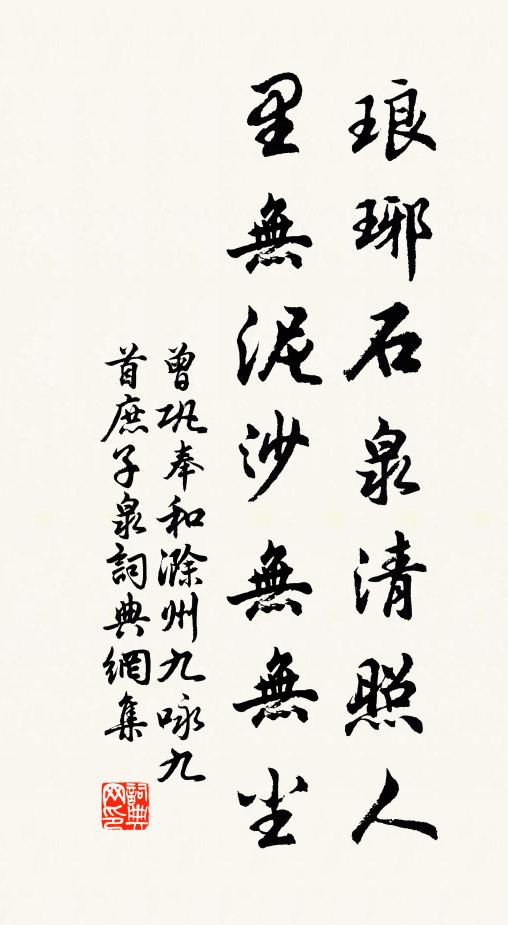 琅琊石泉清照人
里無泥沙無無尘
曾巩奉和滁州九咏九
首庶子泉詞典網集
詞典
网印